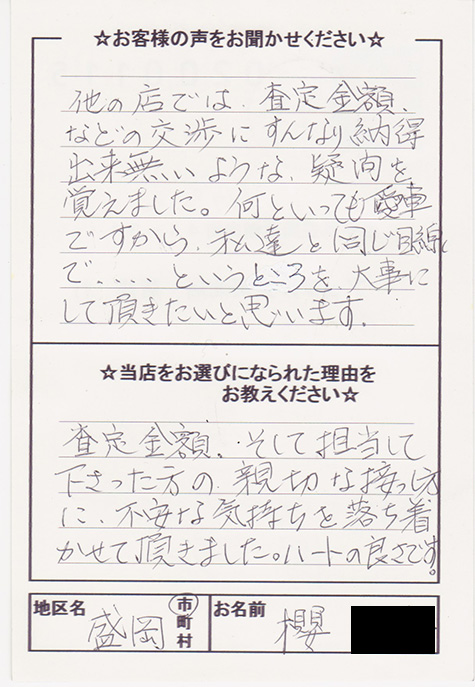 ☆お客様の声をお聞かせください☆
他の店では、査定金額、
などの交渉にすんなり納得
出来無いような、疑問を
覚えました。何といっても愛車
ですから、私達と同じ目線
で、、、、というところを、大事に
して頂きたいと思います。
☆当店をお選びになられた理由を
お教えください☆
査定金額、そして担当して
下さった方の、親切な接っし方
に、不安な気持ちを落ち着
かせて頂きました。ハートの良さです。
地区名 盛岡 市町村 お名前 櫻